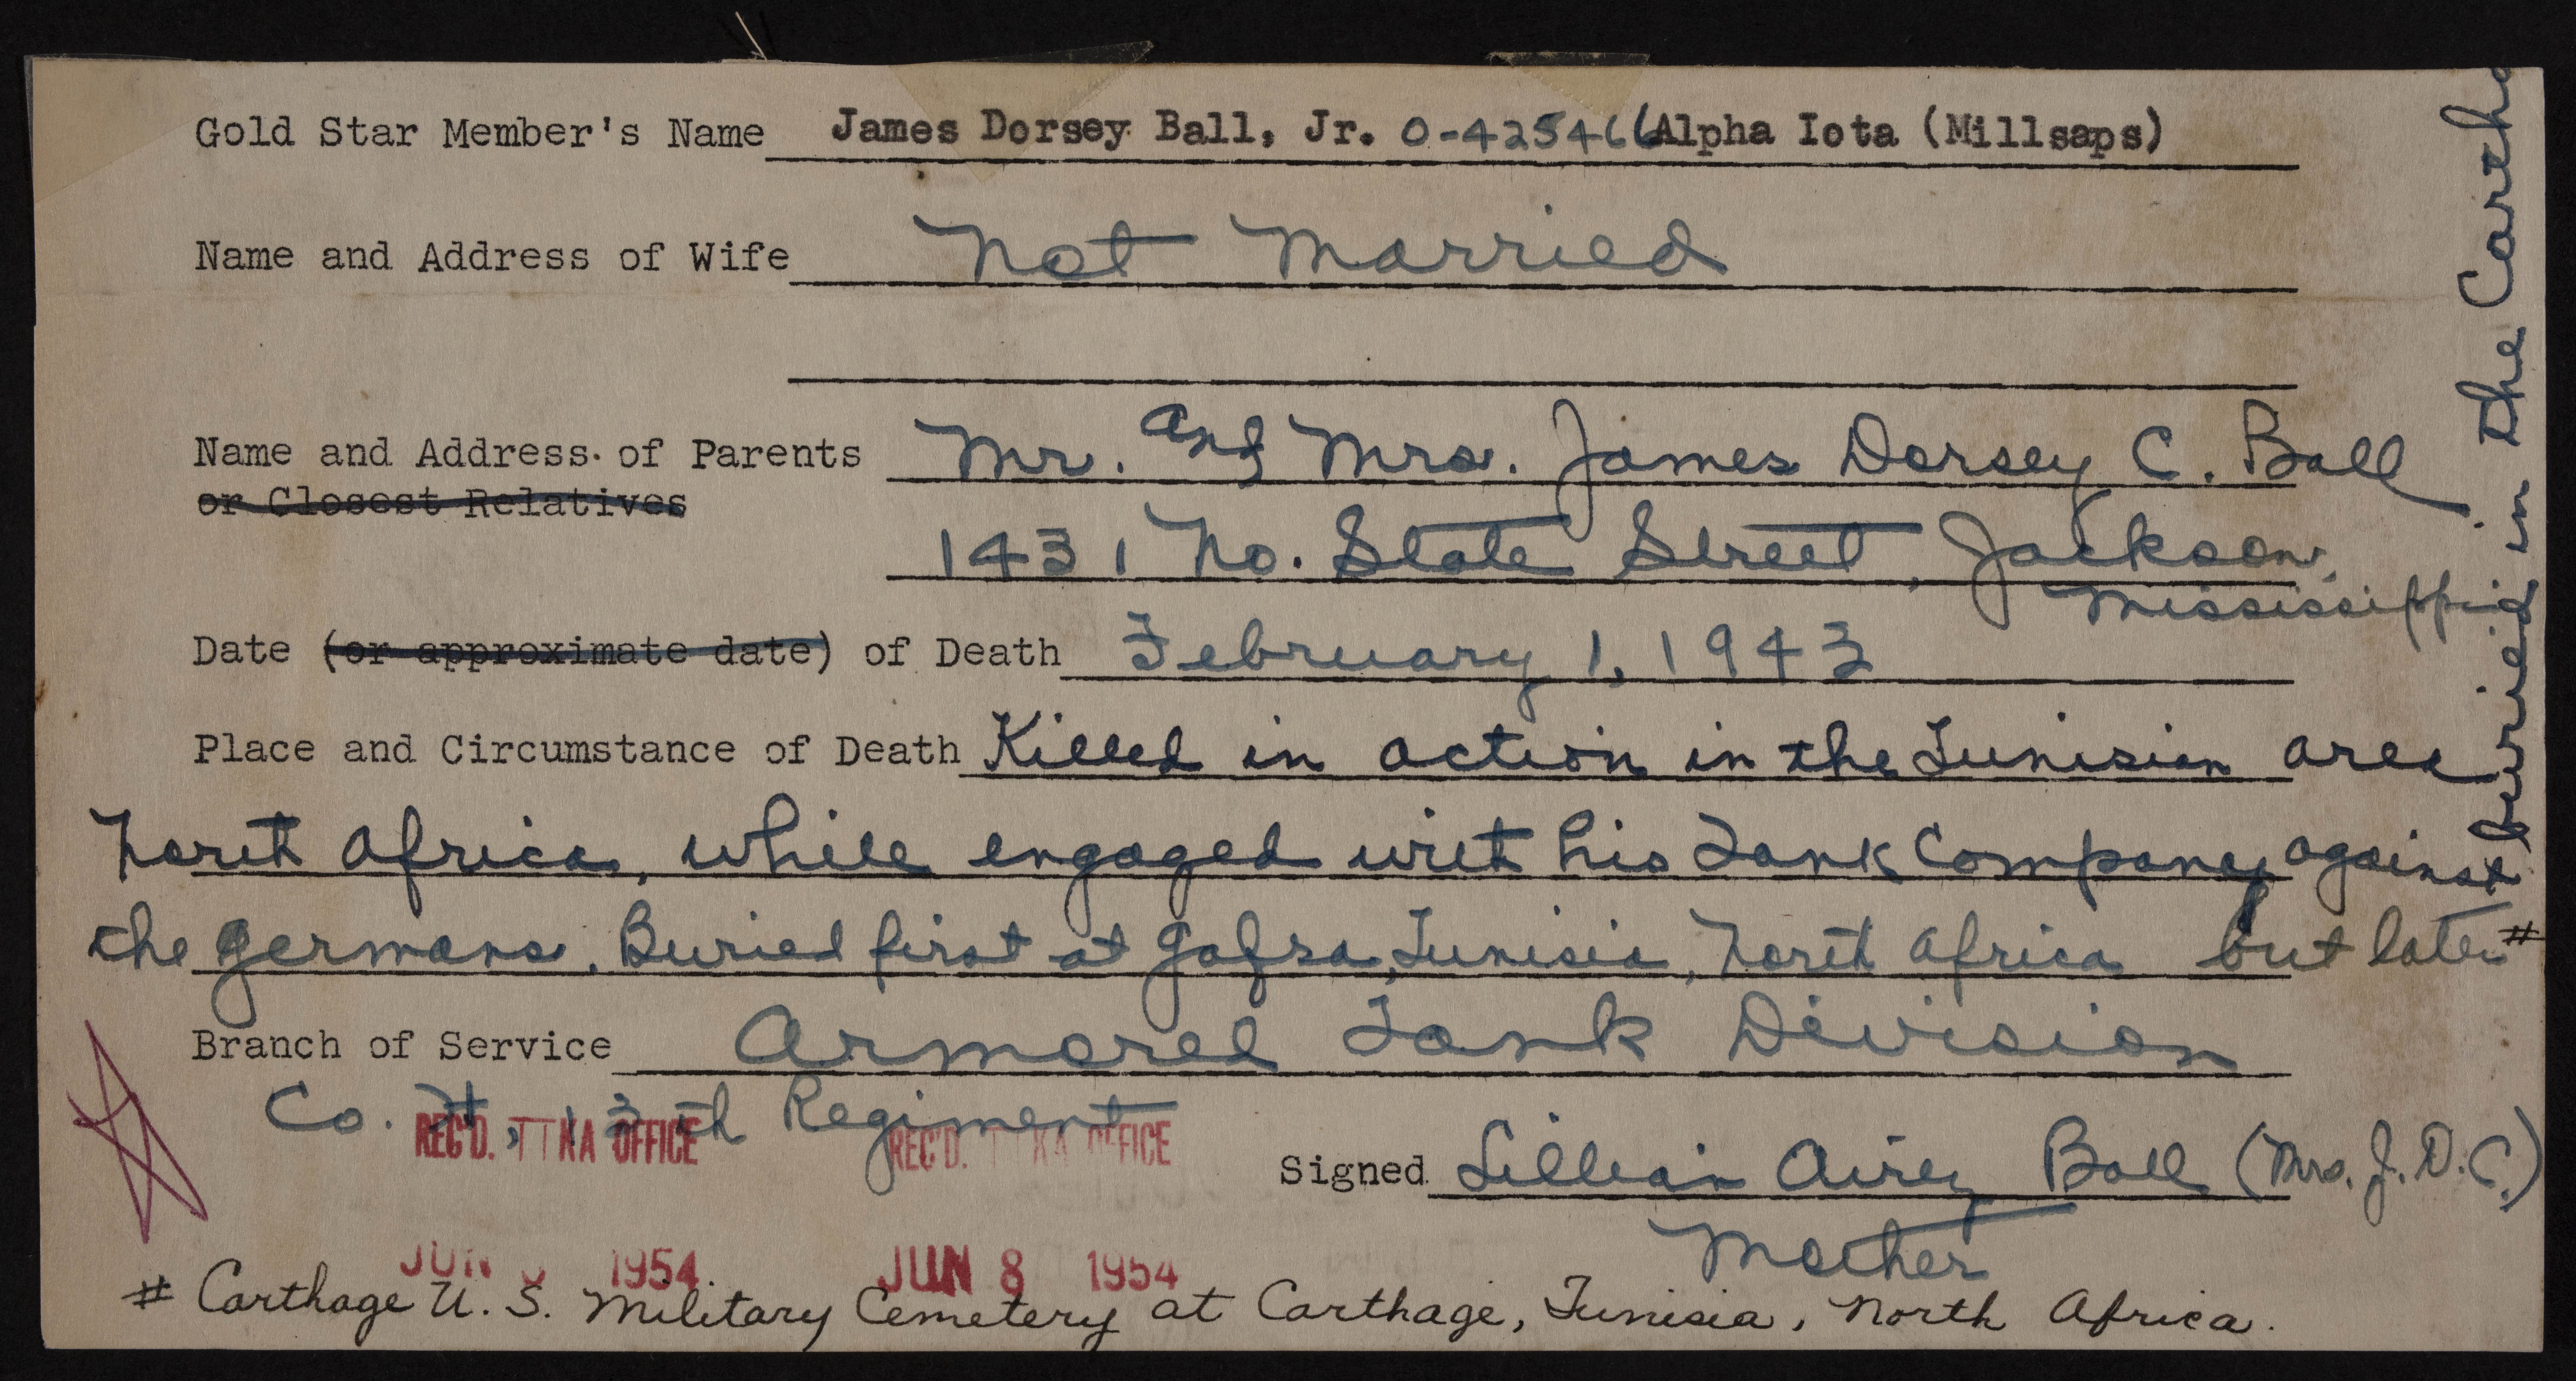 Gold Star Member's Name James Dorsey Ball, Jr. O-425466 Alpha Iota (Millsaps)
Name and Address of Wife Not Married
Name and Address of Parents Mr. and Mrs. James Dorsey C. Ball
or Closest Relatives
1431 No. State Street, Jackson,
Mississippi
Date (or approximate date) of Death February 1, 1943
Place and Circumstance of Death Killed in action in the Tunisian area
North Africa, while engaged with his Tank Company against
the Germans. Buried first at Gafsa, Tunisia, North Africa but later #
buried in the Cartha
Branch of Service Armored Tank Division
Co. 13th Regiment
REC'D. TTKA OFFICE
REC'D. TTKA OFFICE
Signed Lillian Airey Ball (Mrs. J. D. C.)
Mother
JUN 1954
JUN 8 1954
# Carthage U. S. Military Cemetery at Carthage, Tunisia, North Africa.